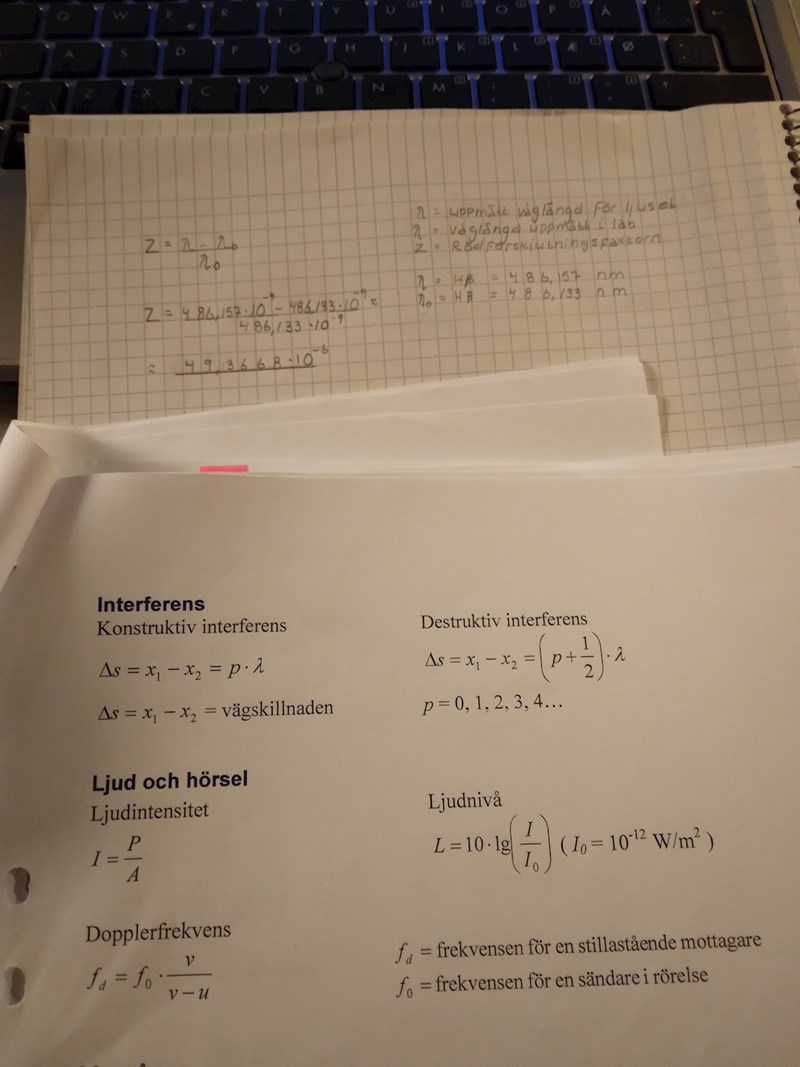 Q W E R T Y U I O P Å
A S D F G H J K L Æ Ø
Z X C V B N M
λ = uppmätt våglängd för ljuset
λ = våglängd uppmätt i lab
z = Rödförskjutningsfaktorn
z = λ - λ₀ / λ₀
λ = Hβ = 486,157 nm
λ₀ = Hβ = 486,133 nm
z = 486,157·10⁻⁹ - 486,133·10⁻⁹ / 486,133·10⁻⁹ ≈
≈ 49,3668·10⁻⁶
Interferens
Konstruktiv interferens
Δs = x₁ − x₂ = p · λ
Δs = x₁ − x₂ = vägskillnaden
Destruktiv interferens
Δs = x₁ − x₂ = (p + 1/2) · λ
p = 0, 1, 2, 3, 4...
Ljud och hörsel
Ljudintensitet
I = P / A
Ljudnivå
L = 10 · lg(I / I₀) ( I₀ = 10⁻¹² W/m² )
Dopplerfrekvens
f_d = f₀ · v / (v − u)
f_d = frekvensen för en stillastående mottagare
f₀ = frekvensen för en sändare i rörelse